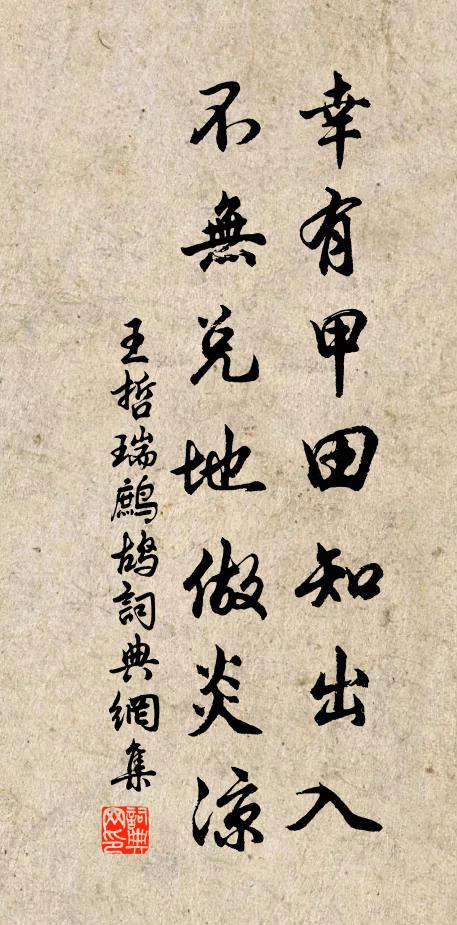 幸有甲田知出入
不無兌地做炎凉
王哲瑞鷓鴣詞典網集
詞典网印